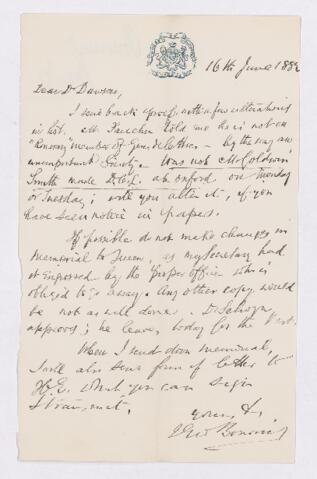 16th June 1882
Dear Dr Dawson,
I send back proof with a few alterations
in list. Mr Faucher told me he is not an
Honorary member of Gens de lettres - by the way an
unimportant Society. Was not Mr Goldwin
Smith made D.C.L. at Oxford on Monday
or Tuesday; will you alter it, if you
have seen notice in papers.
If possible do not make changes in
memorial to Queen, as my Secretary had
it engrossed by the proper officer who is
obliged to go away. Any other copy would
be not as well done. Dr Selwyn
approves; he leaves today for the
When I send down memorial,
I will also send form of letter to
H.E. which you can sign
&
yours, &c,
Bourinot